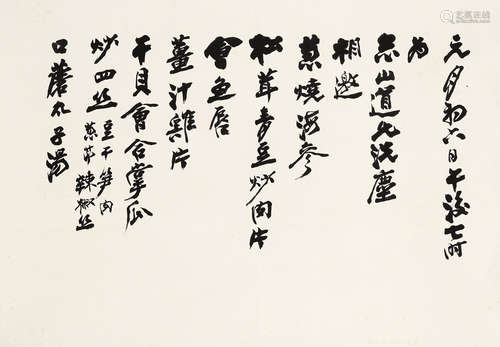 元月初六日午後七时
为
志山道兄洗塵
相邀
葱燒海参
松茸青豆炒肉片
會魚唇
薑汁雞片
干貝會合掌瓜
炒四丝
豆干笋肉
葱芽辣椒丝
口蘑丸子湯